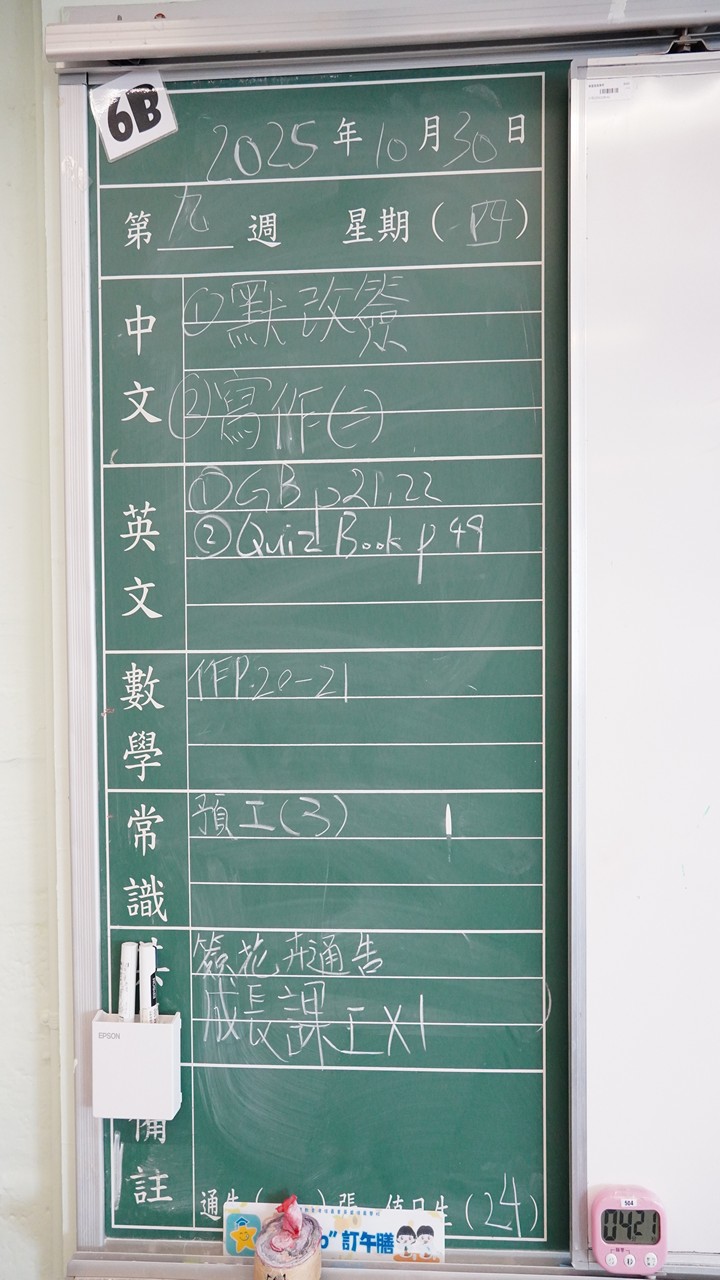 6B
2025年10月30日
第九週 星期(四)
中文
①默改簽
②寫作(二)
英文
①GB p21,22
②Quiz Book p 49
數學
作P.20-21
常識
預工(3)
簽花卉通告
成長課工X1
EPSON
備註
通告( )張 值日生(24)
訂午膳
504
0421